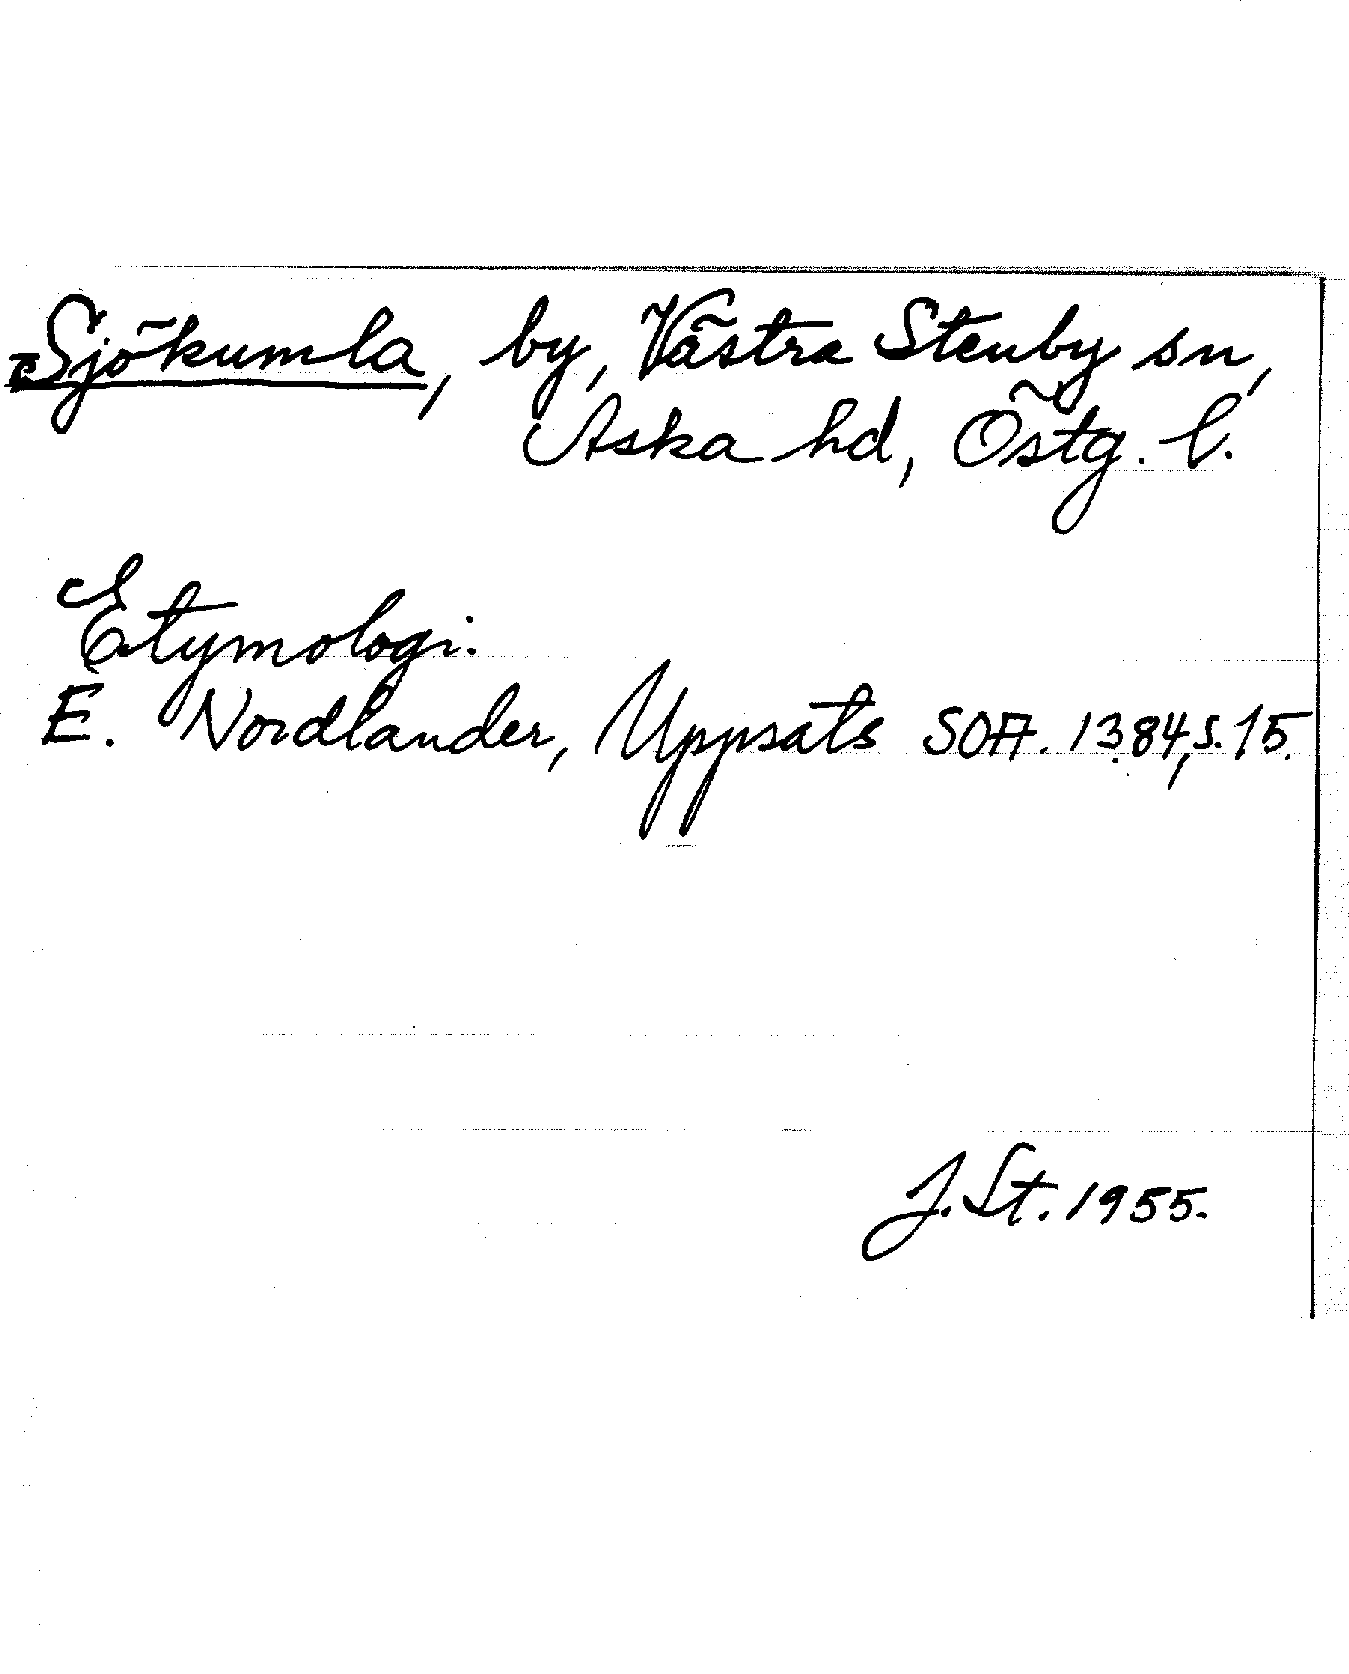 Sjökumla, by, Västra Stenby sn,
Aska hd, Östg. l.
Etymologi.
E. Nordlander, Uppsats SOA. 1384, s. 15.
J. St. 1955.